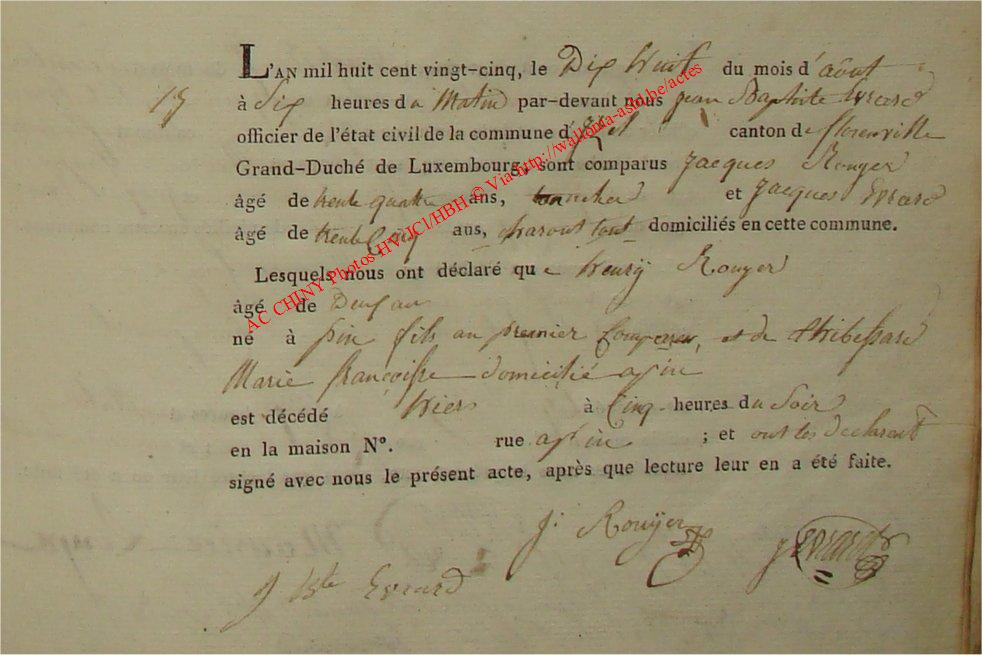 L'AN mil huit cent vingt-cinq, le Dix huit du mois d'août
15 à Six heures du Matin par-devant nous jean Baptiste Evrard
officier de l'état civil de la commune d' canton de florenville
Grand-Duché de Luxembourg, sont comparus jacques Rouyer
âgé de trente quatre ans, et jacques Evrard
âgé de trente Cinq ans, tout domiciliés en cette commune.
Lesquels nous ont déclaré que henrÿ Rouyer
âgé de Deux an
né à pin fils au premier Comparu, et de
Marie françoisse domicilié a pin
est décédé hier à Cinq heures du Soir
en la maison N°. rue a pin ; et ont les declarent
signé avec nous le présent acte, après que lecture leur en a été faite.
j. Rouÿer j Evrard
j Bte Evrard
AC CHINY Photos HVJC1/HBH © Via http://wallonia-asbl.be/actes